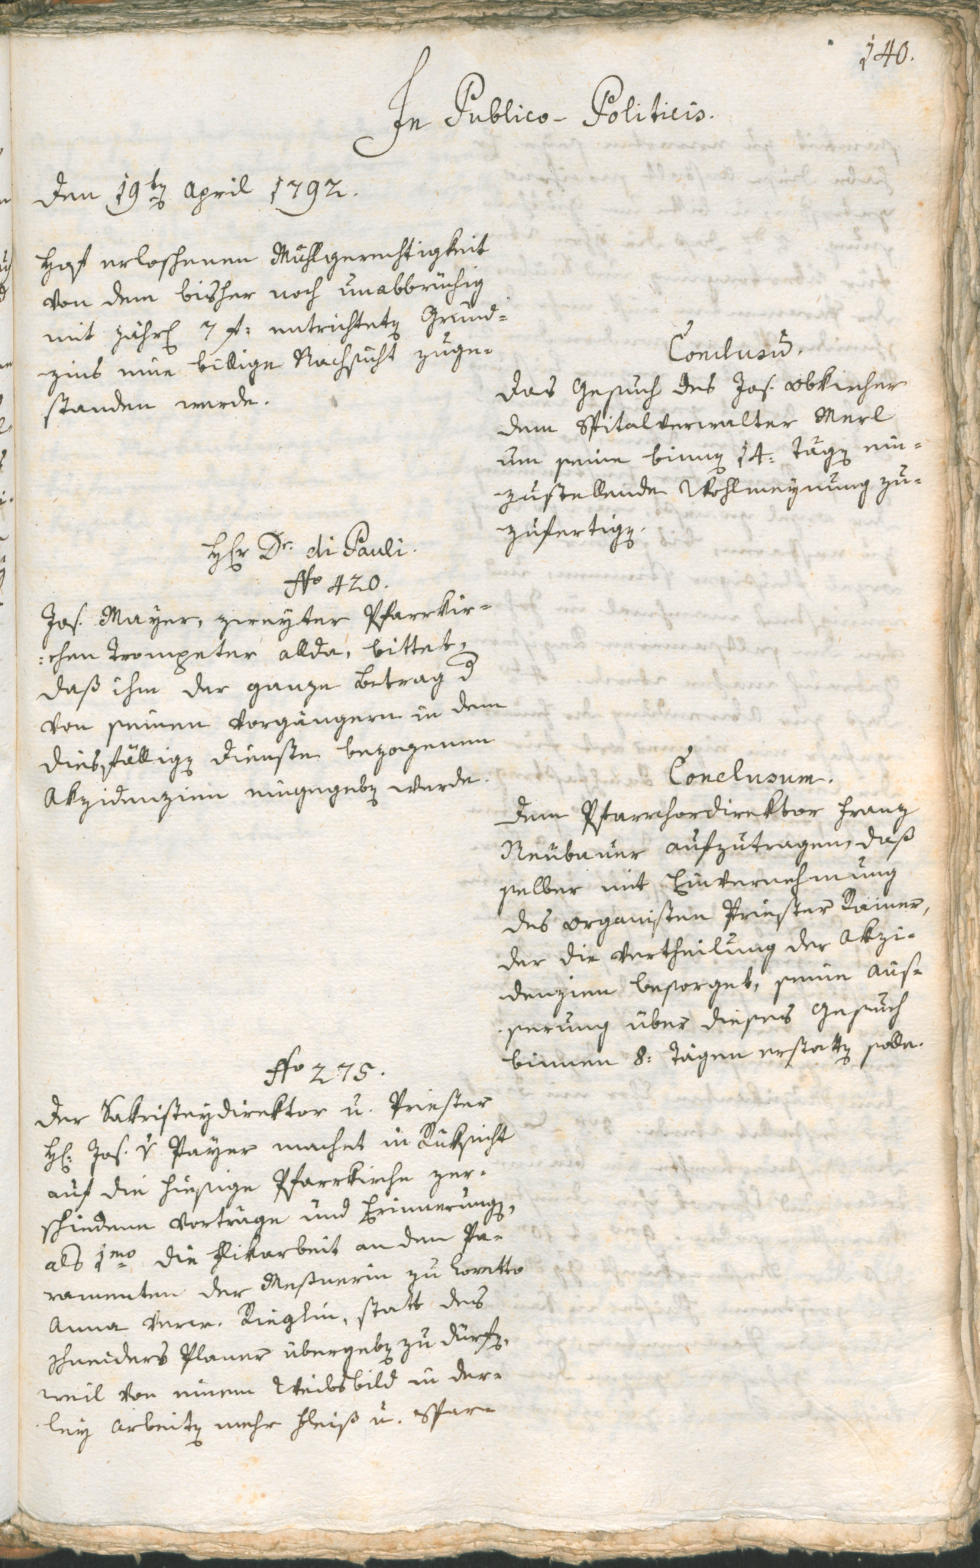 140.
In Publico-Politicis.
Den 19ten April 1792.
erloschenen Mühlgerechtigkeit
von dem bisher noch unabbrüchig
mit jährl 7 f: entrichteten Grund=
zins eine billige Nachsicht zuge=
standen werde.
Conclusum.
Das Gesuch des Jos. Obkircher
dem Spitalverwalter Merl
um seine binnen 14. Tägen ein=
zustellende Wohlmeynung zu=
zufertigen.
Hr Dr. di Pauli.
No 420.
Jos. Mayer, zweyter Pfarrkir=
=chen Trompeter allda, bittet,
daß ihm der ganze Betrag d
von seinen Vorgängern in dem
diesfälligen Dienste bezogenen
Akzidenzien eingegeben werde.
Conclusum.
Dem Pfarrchordirektor Franz
Neubauer aufzutragen, daß
selber mit Einvernehmung
des Organisten Priester Rainer,
der die Vertheilung der Akzi=
denzien besorget, seine Aus=
serung über dieses Gesuch
binnen 8: Tägen erstatten solle.
No 275.
Der Sakristeydirektor u. Priester
H: Jos. v Payer machet in Rüksicht
auf die hiesige Pfarrkirche ver=
schiedene Vorträge und Erinnerungen,
als 1mo die Flikarbeit an den Pa=
ramenten der Meßnerin zu Loretto
Anna verw. Rieglin, statt des
Schneiders Planer übergeben zu dürfen,
weil von einem Weibsbild in der=
ley Arbeiten mehr Fleiß u. Spar=